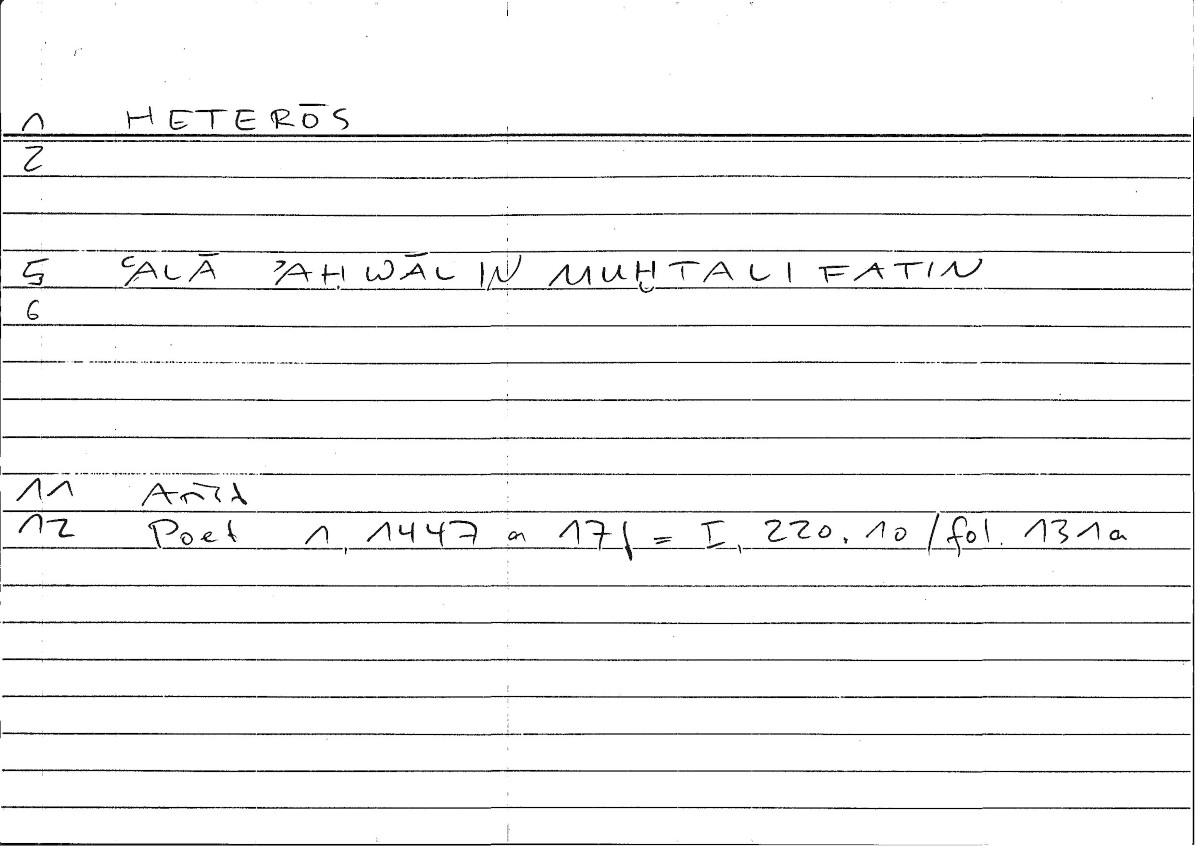 1 HETERŌS
2
5 ʿALĀ ʾAḤWĀLIN MUḪTALIFATIN
6
11
12 Poet 1, 1447 a 17f = I, 220.10 / fol. 131a